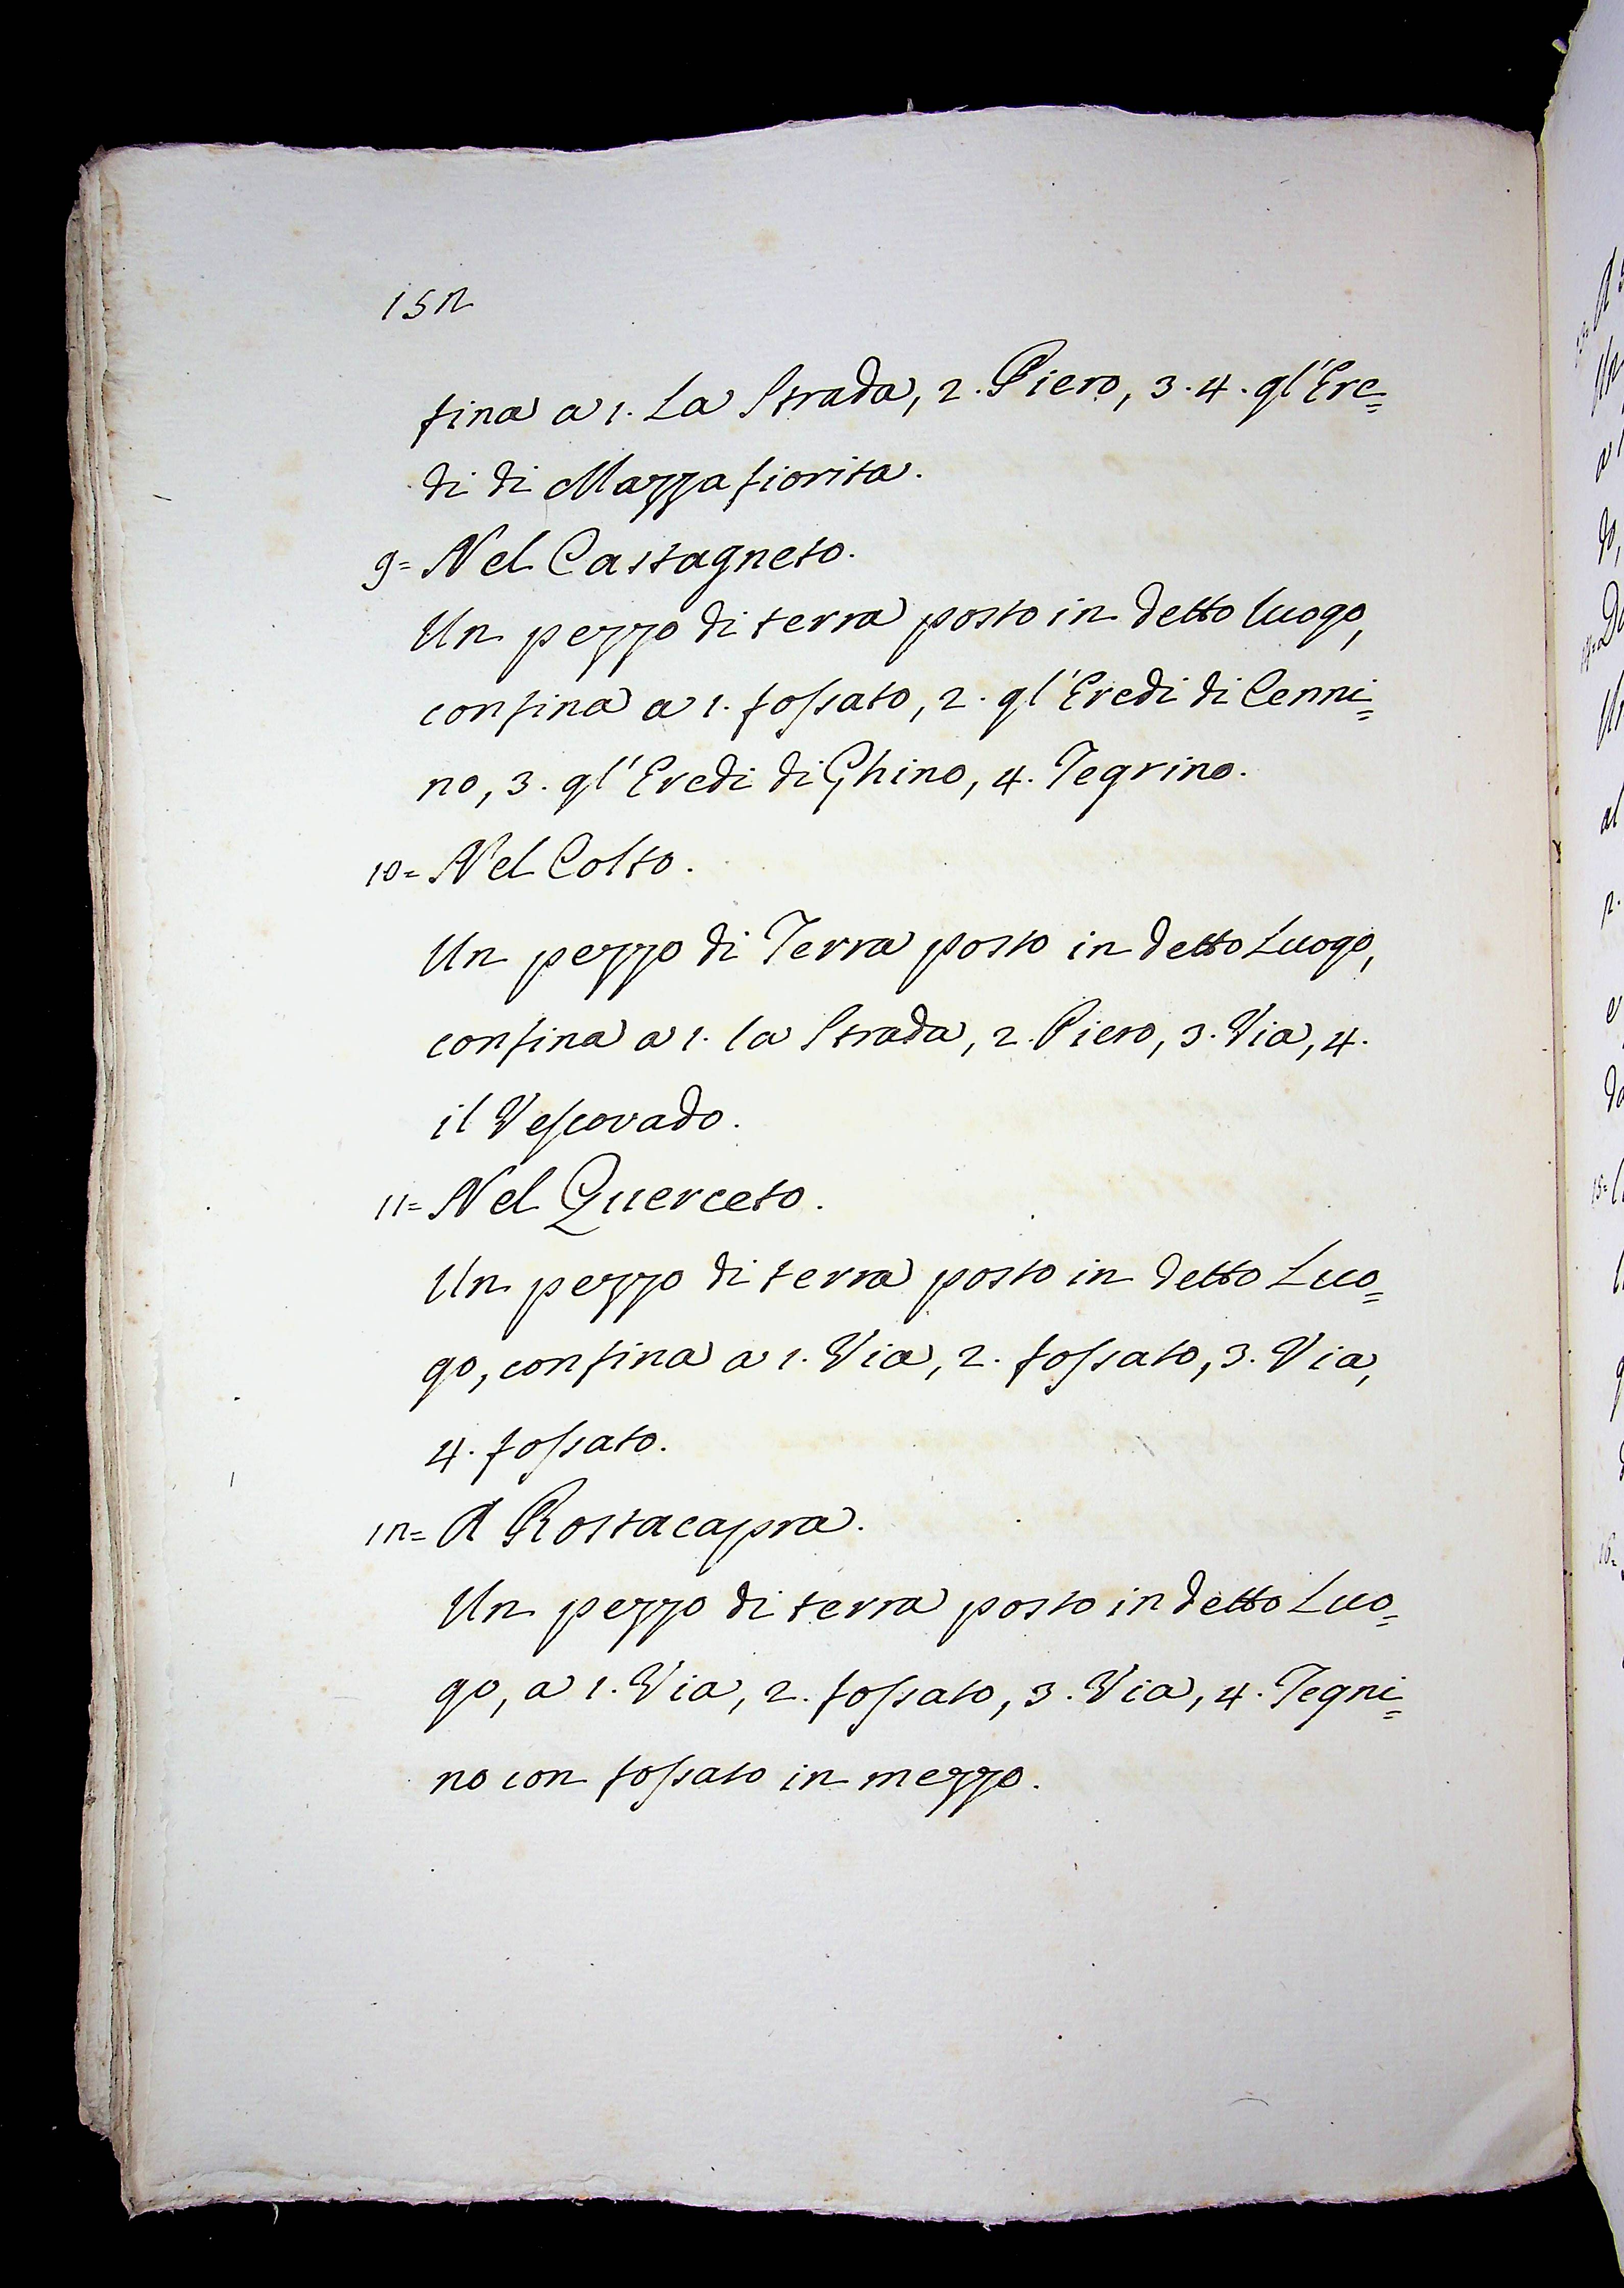 152
fina a 1. La Strada, 2. Piero, 3. 4. gl'Ere=
di di Mazzafiorita.
9= Nel Castagneto.
Un pezzo di terra posto in detto luogo,
confina a 1. fossato, 2. gl'Eredi di Cenni=
no, 3. gl'Eredi di Ghino, 4. Tegrino.
10= Nel Colto.
Un pezzo di Terra posto in detto Luogo,
confina a 1. la Strada, 2. Piero, 3. Via, 4.
il Vescovado.
11= Nel Querceto.
Un pezzo di terra posto in detto Luo=
go, confina a 1. Via, 2. fossato, 3. Via,
4. fossato.
12= A Rostacapra.
Un pezzo di terra posto in detto Luo=
go, a 1. Via, 2. fossato, 3. Via, 4. Tegni=
no con fossato in mezzo.